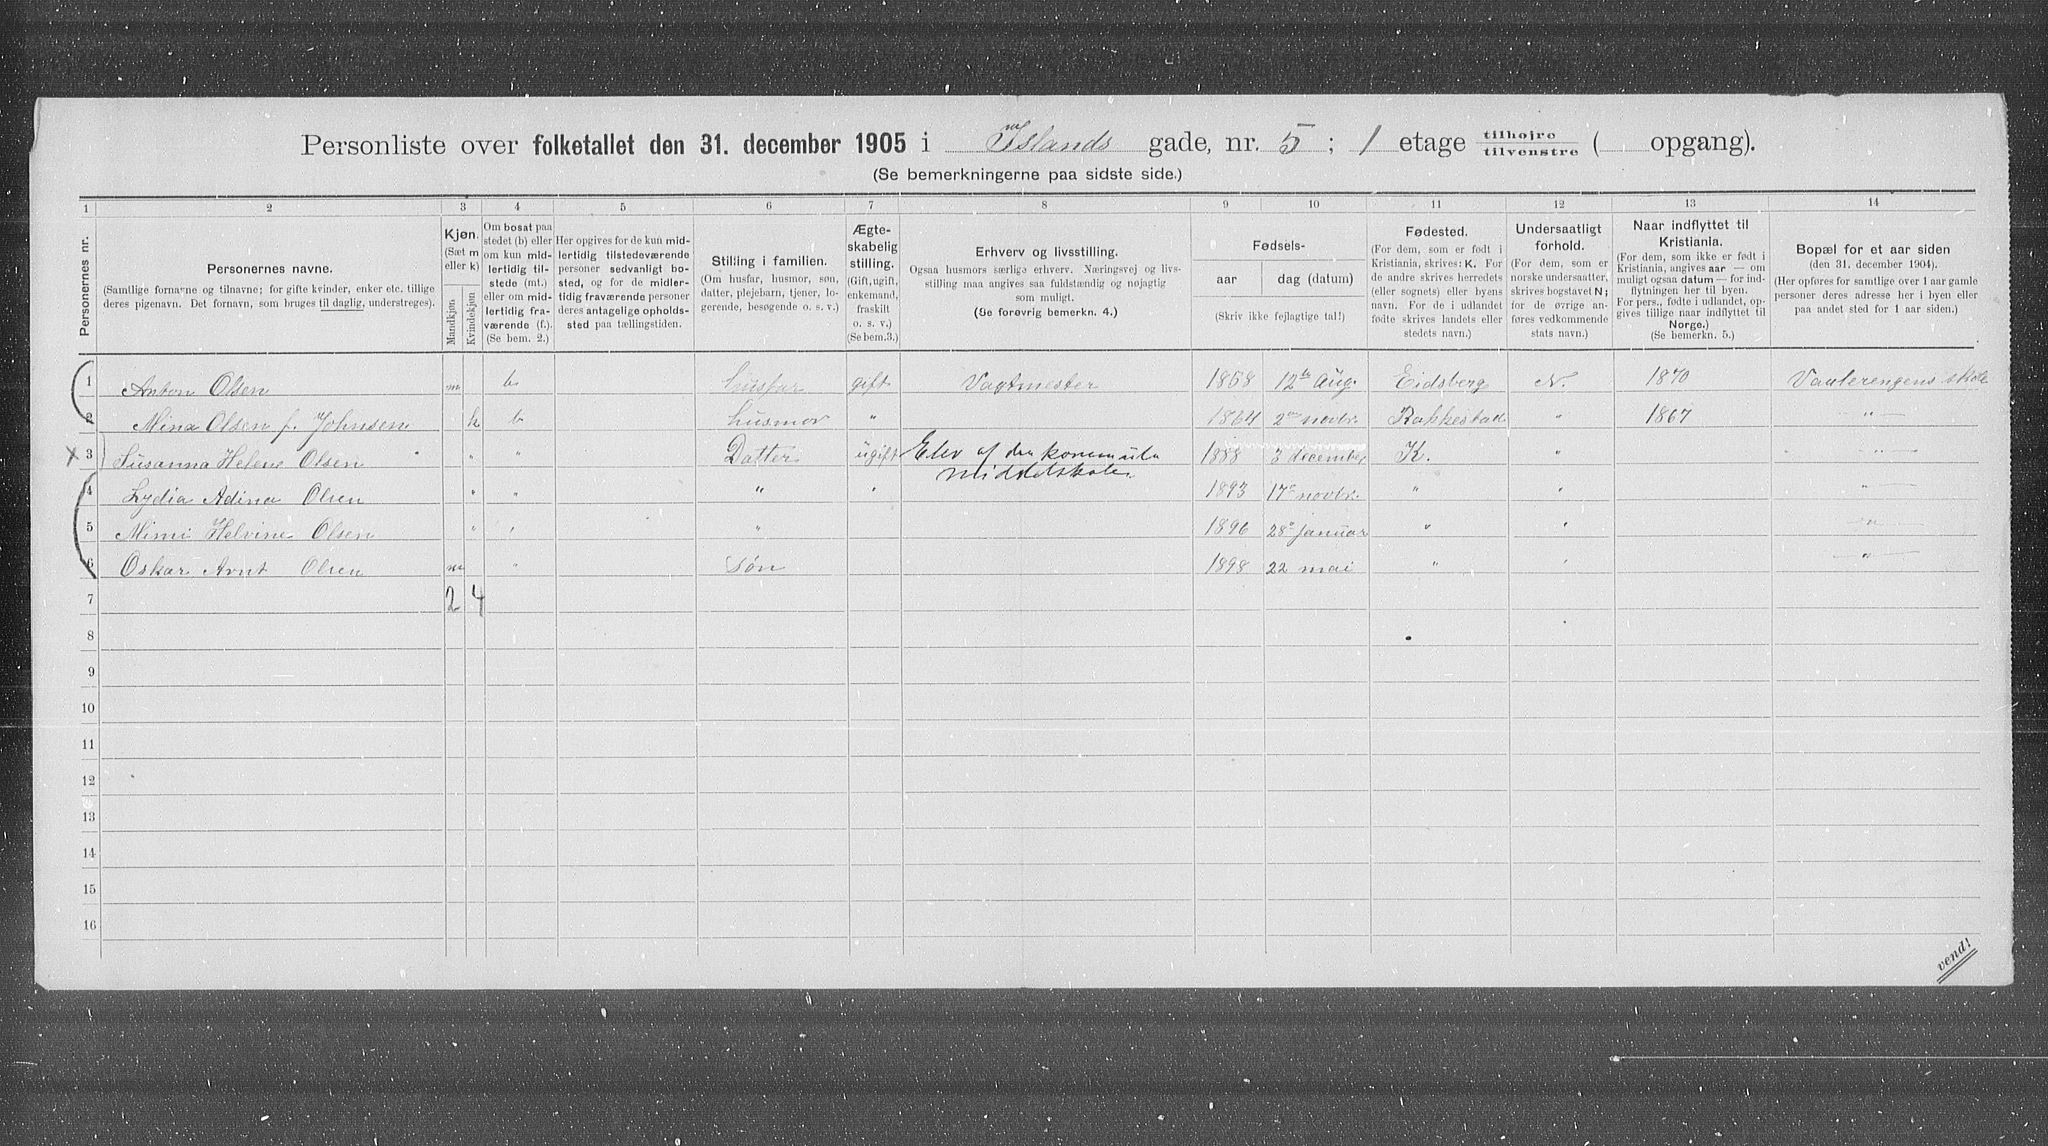 Personliste over folketallet den 31. december 1905 i Islands gade, nr. 5 ; 1 etage tilhøjre tilvenstre ( opgang).
(Se bemerkningerne paa sidste side.)
1 2 3 4 5 6 7 8 9 10 11 12 13 14
Personernes nr.
Personernes navne.
(Samtlige fornavne og tilnavne; for gifte kvinder, enker etc. tillige
deres pigenavn. Det fornavn, som bruges til daglig, understreges).
Kjøn.
(Sæt m
eller k)
Mandkjøn.
Kvindekjøn.
Om bosat paa
stedet (b) eller
om kun mid-
lertidig til-
stede (mt.)
eller om mid-
lertidig fra-
værende (f.).
(Se bem. 2.)
Her opgives for de kun mid-
lertidig tilstedeværende
personer sedvanligt bo-
sted, og for de midler-
tidig fraværende personer
deres antagelige opholds-
sted paa tællingstiden.
Stilling i familien.
(Om husfar, husmor, søn,
datter, plejebarn, tjener, lo-
gerende, besøgende o. s. v.)
Ægte-
skabelig
stilling.
(Gift, ugift,
enkemand,
fraskilt
o. s. v.)
(Se bem.3.)
Erhverv og livsstilling.
Ogsaa husmors særlige erhverv. Næringsvej og livs-
stilling maa angives saa fuldstændig og nøjagtig
som muligt.
(Se forøvrig bemerkn. 4.)
Fødsels-
aar dag (datum)
(Skriv ikke fejlagtige tal!)
Fødested.
(For dem, som er født i
Kristiania, skrives: K. For
de andre skrives herredets
(eller sognets) eller byens
navn. For de i udlandet
fødte skrives landets eller
stedets navn.)
Undersaatligt
forhold.
(For dem, som er
norske undersaatter,
skrives bogstavet N;
for de øvrige an-
føres vedkommende
stats navn.)
Naar indflyttet til
Kristiania.
(For dem, som ikke er født i
Kristiania, angives aar — om
muligt ogsaa datum — for ind-
flytningen her til byen.
For pers., fødte i udlandet, op-
gives tillige naar indflyttet til
Norge.)
(Se bemerkn. 5.)
Bopæl for et aar siden
(den 31. december 1904).
(Her opføres for samtlige over 1 aar gamle
personer deres adresse her i byen eller
paa andet sted for 1 aar siden.)
1 Anton Olsen m b husfar gift Vagtmester 1858 12te Aug. Eidsberg N. 1870 Vaalerengens skole
2 Mina Olsen f. Johnsen k b husmor " 1864 2den novbr. Rakkestad " 1867 "
x 3 Susanna Helene Olsen " " Datter ugift Elev af den kommunale 1888 3 december K. " "
middelskole
4 Lydia Adina Olsen " " " " 1893 17de novbr. " " "
5 Mimi Helvine Olsen " " " 1896 28de Januar " " "
6 Oskar Arnt Olsen m " Søn 1898 22 mai " " "
7 2 4
8
9
10
11
12
13
14
15
16
vend!